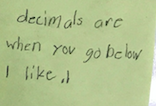 decimals are
when you go below
1 like .1